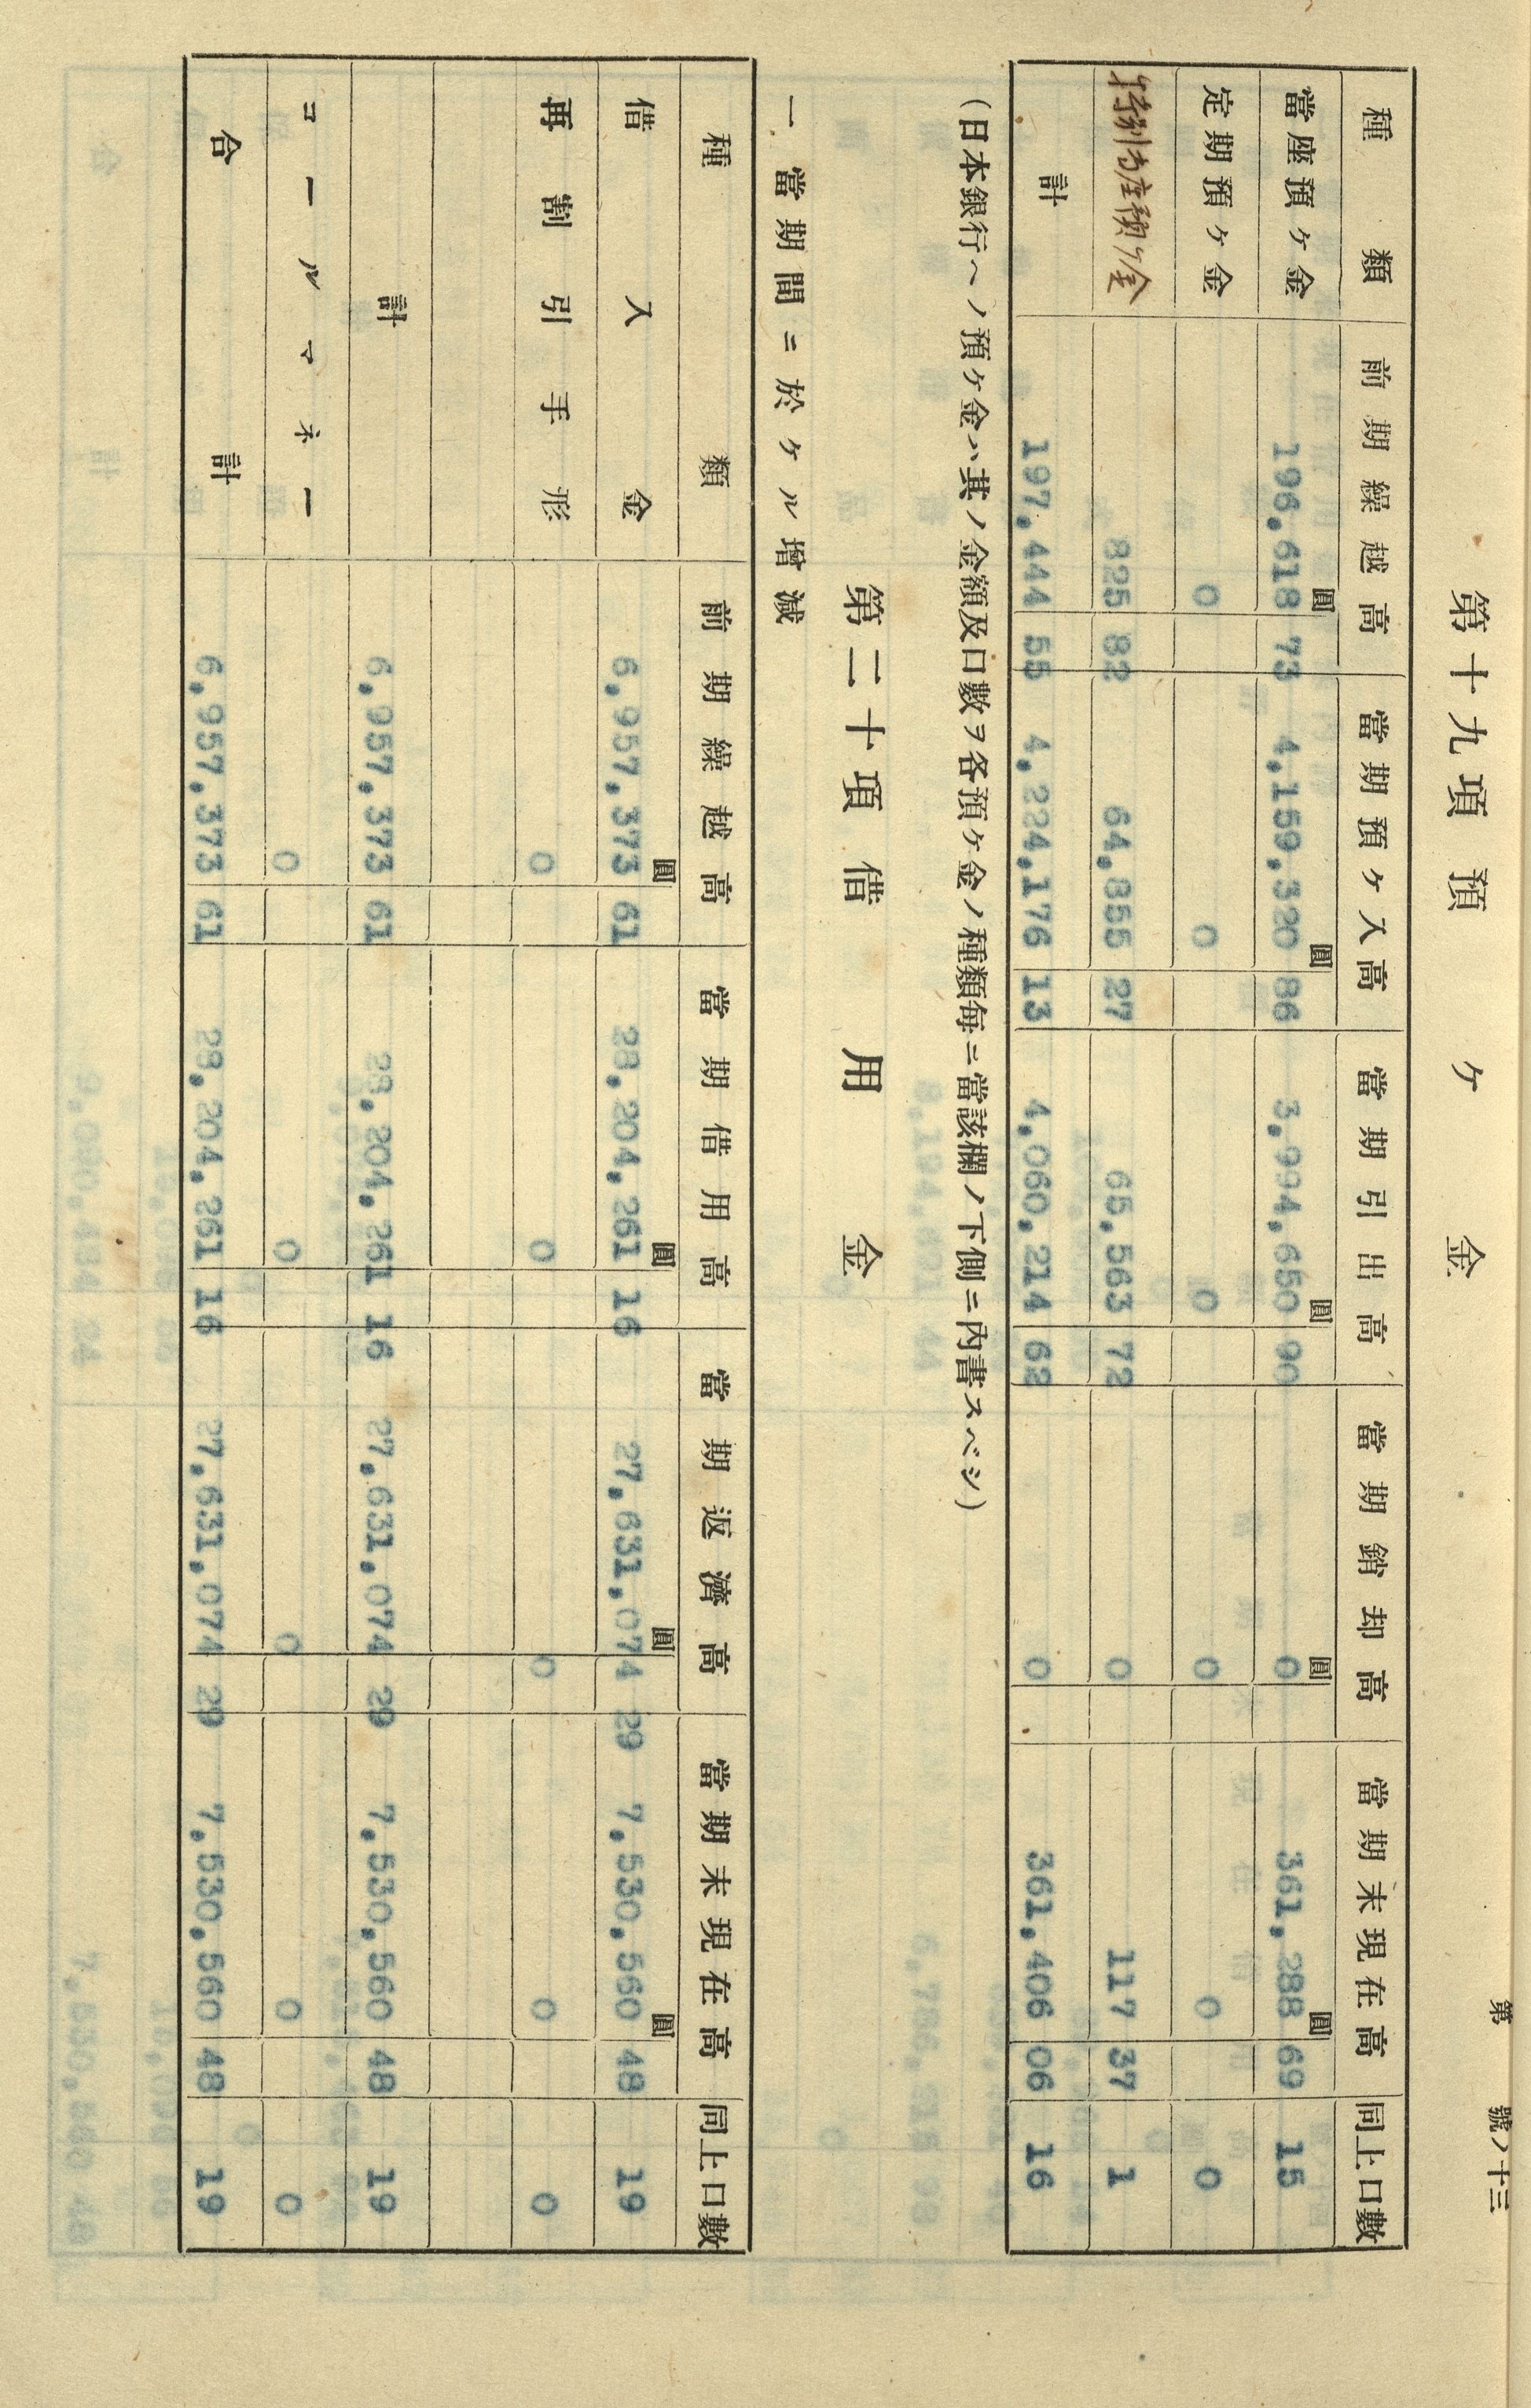 第 號ノ十三
第十九項 預ケ金
種類 前期繰越高 當期預ケ入高 當期引出高 當期銷却高 當期末現在高 同上口數
圓 圓 圓 圓 圓
當座預ケ金 196,618 73 4,159,320 86 3,994,650 90 0 361,288 69 15
定期預ケ金 0 0 0 0 0 0
特別當座預ケ金 825 82 64,855 27 65,563 72 0 117 37 1
計 197,444 55 4,224,176 13 4,060,214 62 0 361,406 06 16
(日本銀行ヘノ預ケ金ハ其ノ金額及口數ヲ各預ケ金ノ種類每ニ當該欄ノ下側ニ內書スベシ)
第二十項 借用金
一 當期間ニ於ケル增減
種類 前期繰越高 當期借用高 當期返濟高 當期末現在高 同上口數
圓 圓 圓 圓
借入金 6,957,373 61 28,204,261 16 27,631,074 29 7,530,560 48 19
再割引手形 0 0 0 0 0
計 6,957,373 61 28,204,261 16 27,631,074 29 7,530,560 48 19
コールマネー 0 0 0 0 0
合計 6,957,373 61 28,204,261 16 27,631,074 29 7,530,560 48 19